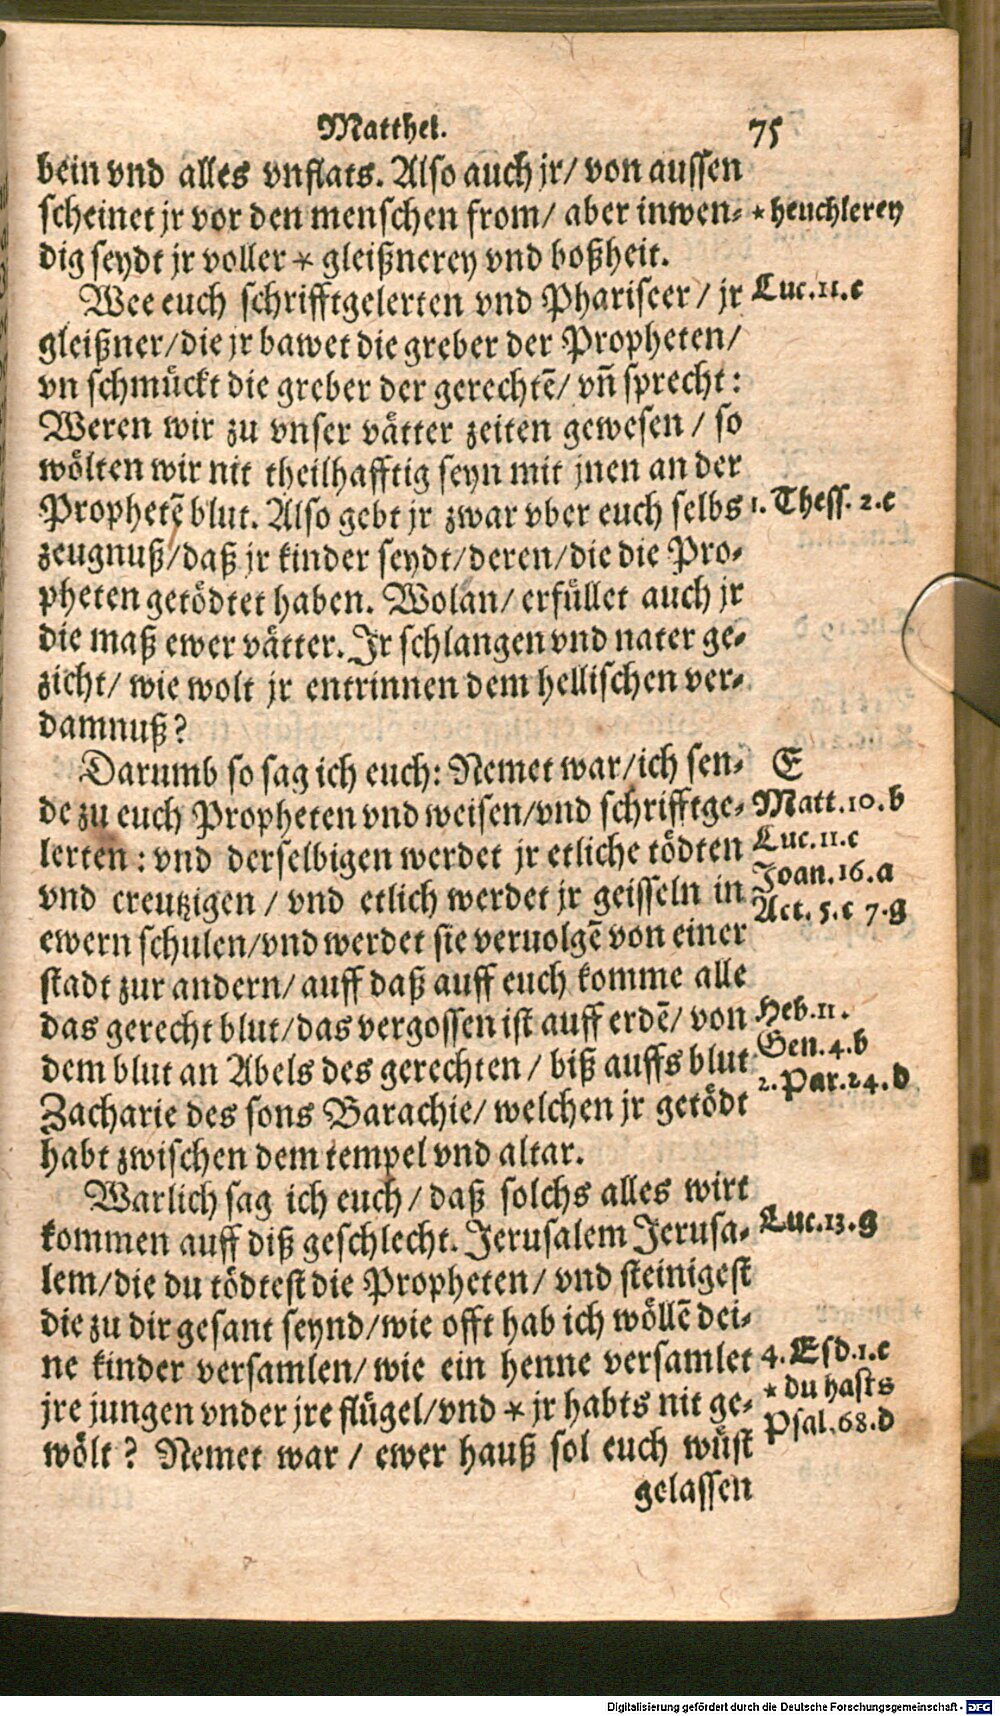 Matthei. 75
bein vnd alles vnflats. Also auch jr/ von aussen
scheinet jr vor den menschen from/ aber inwen- * heuchlerey
dig seydt jr voller * gleißnerey vnd boßheit.
Wee euch schrifftgelerten vnd Phariseer/ jr Luc.11.c
gleißner/die jr bawet die greber der Propheten/
vn schmückt die greber der gerechtẽ/ vñ sprecht:
Weren wir zu vnser vätter zeiten gewesen/ so
wölten wir nit theilhafftig seyn mit jnen an der
Prophetẽ blut. Also gebt jr zwar vber euch selbs 1. Thess. 2.c
zeugnuß/daß jr kinder seydt/deren/die die Pro-
pheten getödtet haben. Wolan/ erfüllet auch jr
die maß ewer vätter. Jr schlangen vnd nater ge-
zicht/ wie wolt jr entrinnen dem hellischen ver-
damnuß?
Darumb so sag ich euch: Nemet war/ich sen- E
de zu euch Propheten vnd weisen/vnd schrifftge- Matt.10.b
lerten: vnd derselbigen werdet jr etliche tödten Luc.11.c
Joan.16.a
vnd creutzigen/ vnd etlich werdet jr geisseln in Act. 5.c 7.g
ewern schulen/vnd werdet sie veruolgẽ von einer
stadt zur andern/ auff daß auff euch komme alle
das gerecht blut/das vergossen ist auff erdẽ/ von Heb.11.
dem blut an Abels des gerechten/ biß auffs blut Gen.4.b
2.Par.24.d
Zacharie des sons Barachie/ welchen jr getödt
habt zwischen dem tempel vnd altar.
Warlich sag ich euch/ daß solchs alles wirt
kommen auff diß geschlecht. Jerusalem Jerusa- Luc.13.g
lem/die du tödtest die Propheten/ vnd steinigest
die zu dir gesant seynd/wie offt hab ich wöllẽ dei-
ne kinder versamlen/ wie ein henne versamlet 4. Esd.1.c
jre jungen vnder jre flügel/vnd * jr habts nit ge- * du hasts
wölt? Nemet war/ ewer hauß sol euch wüst Psal.68.d
gelassen
Digitalisierung gefördert durch die Deutsche Forschungsgemeinschaft - DFG